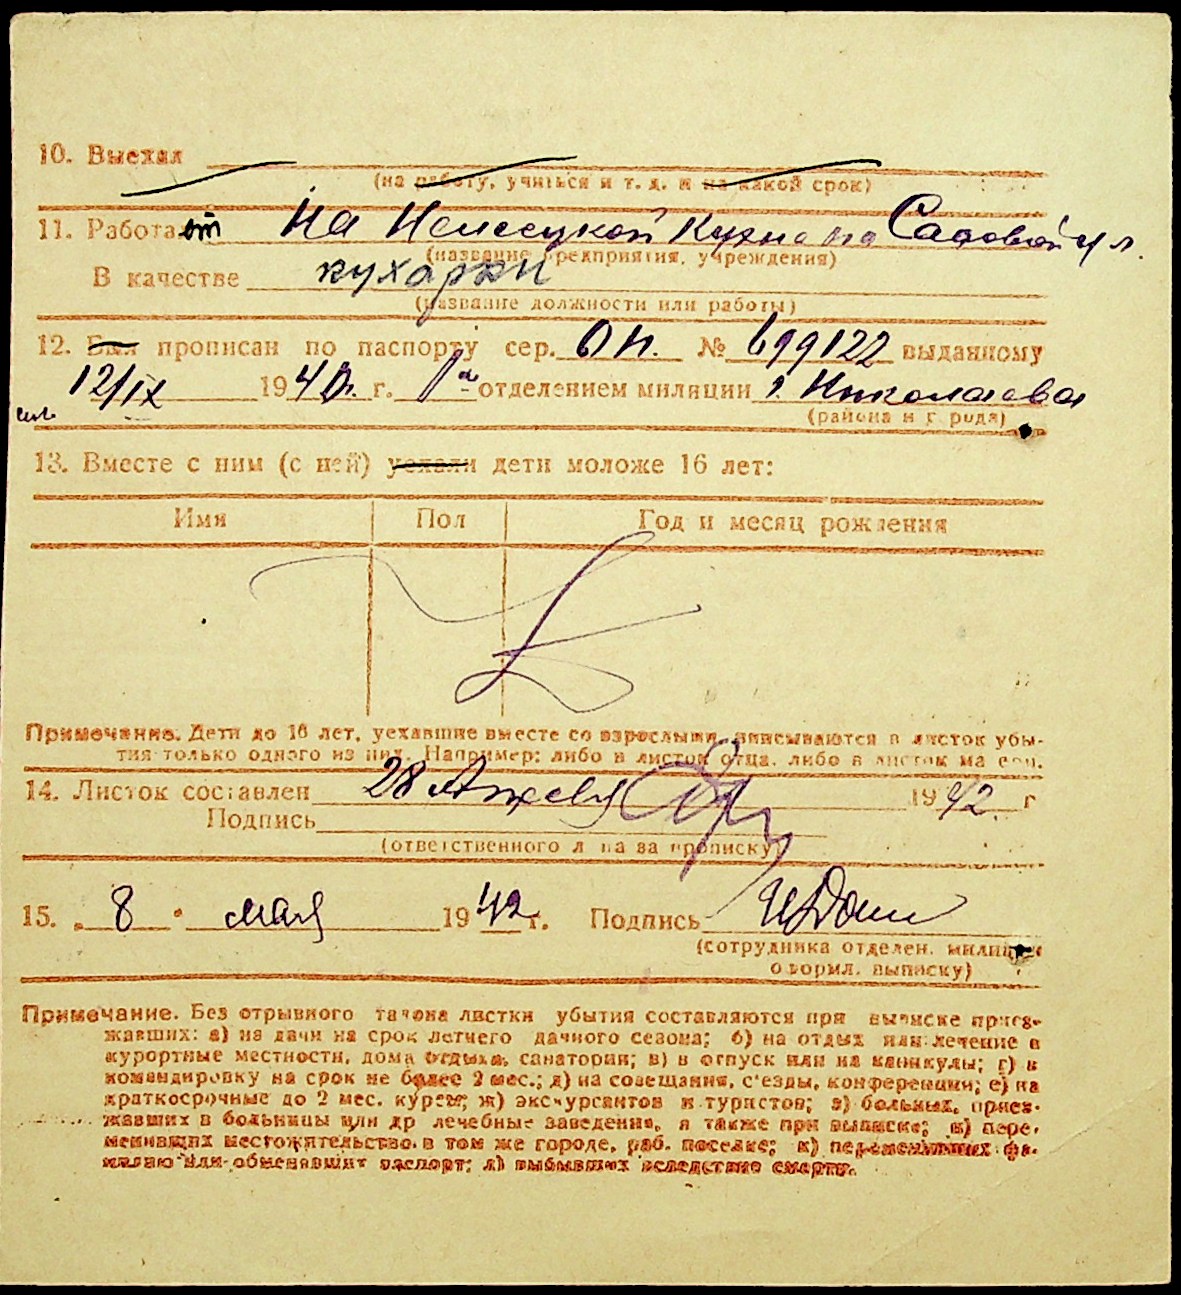 10. Выехал
(на работу, учиться и т. д. и на какой срок)
11. Работает На Немецкой Кухне на Садовой ул.
(название предприятия, учреждения)
В качестве кухарки
(название должности или работы)
12. Был прописан по паспорту сер. ОН. № 699122 выданному
12/IX 1940. г. 1м отделением милиции г. Николаева
(района и города)
13. Вместе с ним (с ней) уехали дети моложе 16 лет:
Имя Пол Год и месяц рождения
Примечание. Дети до 16 лет, уехавшие вместе со взрослыми, вписываются в листок убы-
тия только одного из них. Например: либо в листок отца, либо в листок матери.
14. Листок составлен 28 Апреля 1942. г
Подпись
(ответственного лица за прописку)
15. „ 8 " мая 1942 г. Подпись
(сотрудника отделен. милиции
оформл. выписку)
Примечание. Без отрывного талона листки убытия составляются при выписке приез-
жавших: а) на дачи на срок летнего дачного сезона; б) на отдых или лечение в
курортные местности, дома отдыха, санатории; в) в отпуск или на каникулы; г) в
командировку на срок не более 2 мес.; д) на совещания, с'езды, конференции; е) на
краткосрочные до 2 мес. курсы; ж) экскурсантов и туристов; з) больных, приез-
жавших в больницы или др лечебные заведения, а также при выписке; и) пере-
менивших местожительство в том же городе, раб. поселке; к) переменивших фа-
милию или обменявших паспорт; л) выбывших вследствие смерти.